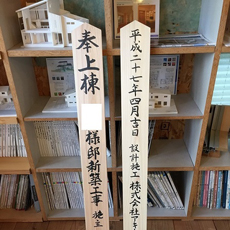 奉上棟
様邸新築工事
施主
平成二十七年四月吉日
設計施工
株式会社アキ